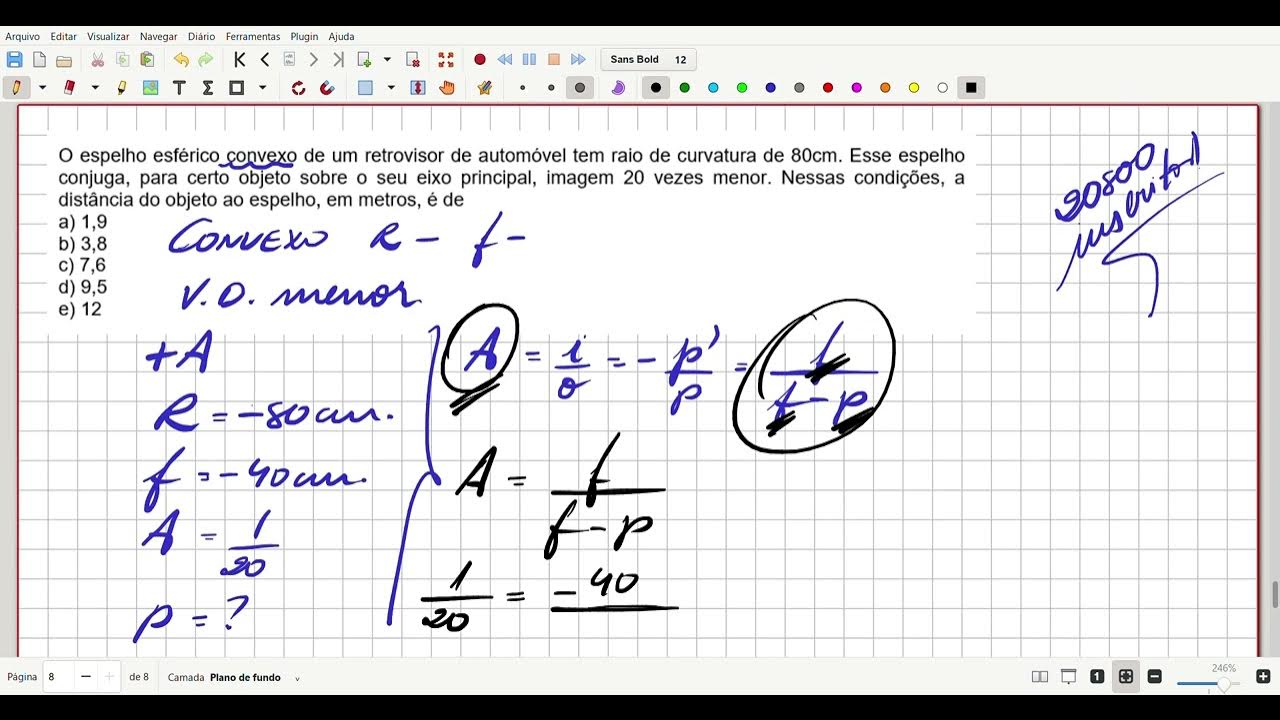 Arquivo Editar Visualizar Navegar Diário Ferramentas Plugin Ajuda
Sans Bold 12
O espelho esférico convexo de um retrovisor de automóvel tem raio de curvatura de 80cm. Esse espelho
conjuga, para certo objeto sobre o seu eixo principal, imagem 20 vezes menor. Nessas condições, a
distância do objeto ao espelho, em metros, é de
a) 1,9
b) 3,8
c) 7,6
d) 9,5
e) 12
CONVEXO R - f -
V.D. menor.
+A
R = -80cm.
f = -40cm.
A = 1/20
p = ?
A = i/o = - p'/p = f/f-p
A = f/f-p
1/20 = -40
20800
inscritos
Página 8 de 8 Camada Plano de fundo
246%